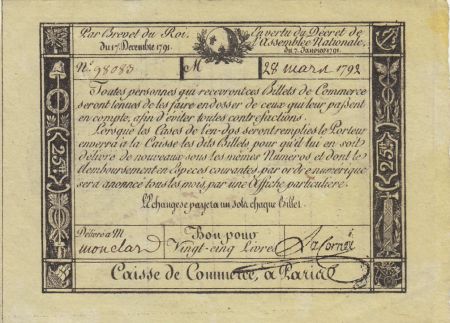 Par Brevet du Roi,
du 17. Décembre 1791.
En vertu du Decret de
l'Assemblée Nationale,
du 7. Janvier 1791.
N.º 98083 M 28 mars 1792
Toutes personnes qui recevront ces Billets de Commerce
seront tenues de les faire endosser de ceux qui leur passent
en compte, afin d'éviter toutes contrefactions.
Lorsque les Cases de l'en-dos seront remplies le Porteur
enverra à la Caisse les dits Billets, pour qu'il lui en soit
délivré de nouveaux sous les mêmes Numeros et dont le
Remboursement en Espèces courantes, par ordre numerique
sera anoncé tous les mois, par une Affiche particuliere.
L'Echange se payera un sol à chaque Billet.
25tt
25tt
Délivré à M
monclard
Bon pour
Vingt-cinq Livres
Caisse de Commerce, a Paris